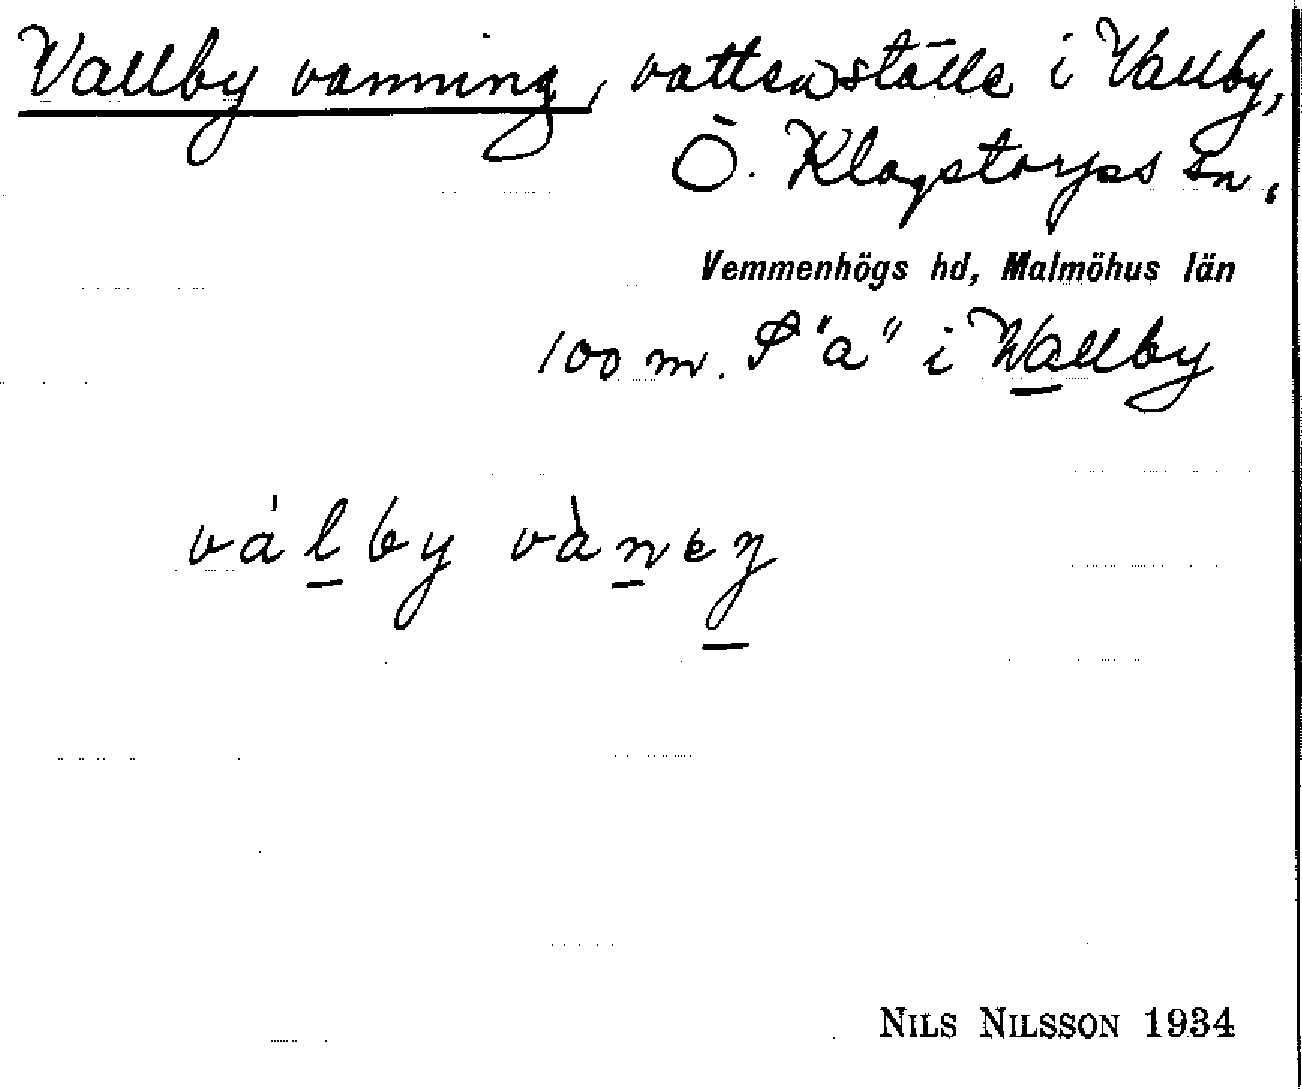 Vallby vanning, vattenställe i Vallby,
Ö. Klagstorps sn.
Vemmenhögs hd, Malmöhus län
100 m. S "a" i Wallby
válby vàneŋ
NILS NILSSON 1934